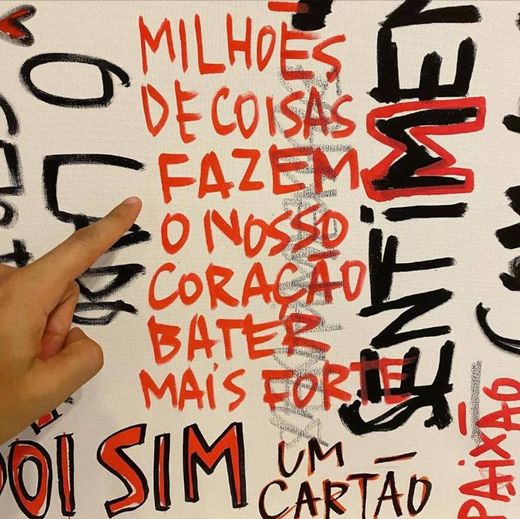 MILHÕES
DE COISAS
FAZEM
O NOSSO
CORAÇÃO
BATER
MAIS FORTE
O LADO
SENTIMEN
SIM
UM
CARTÃO
PAIXÃO